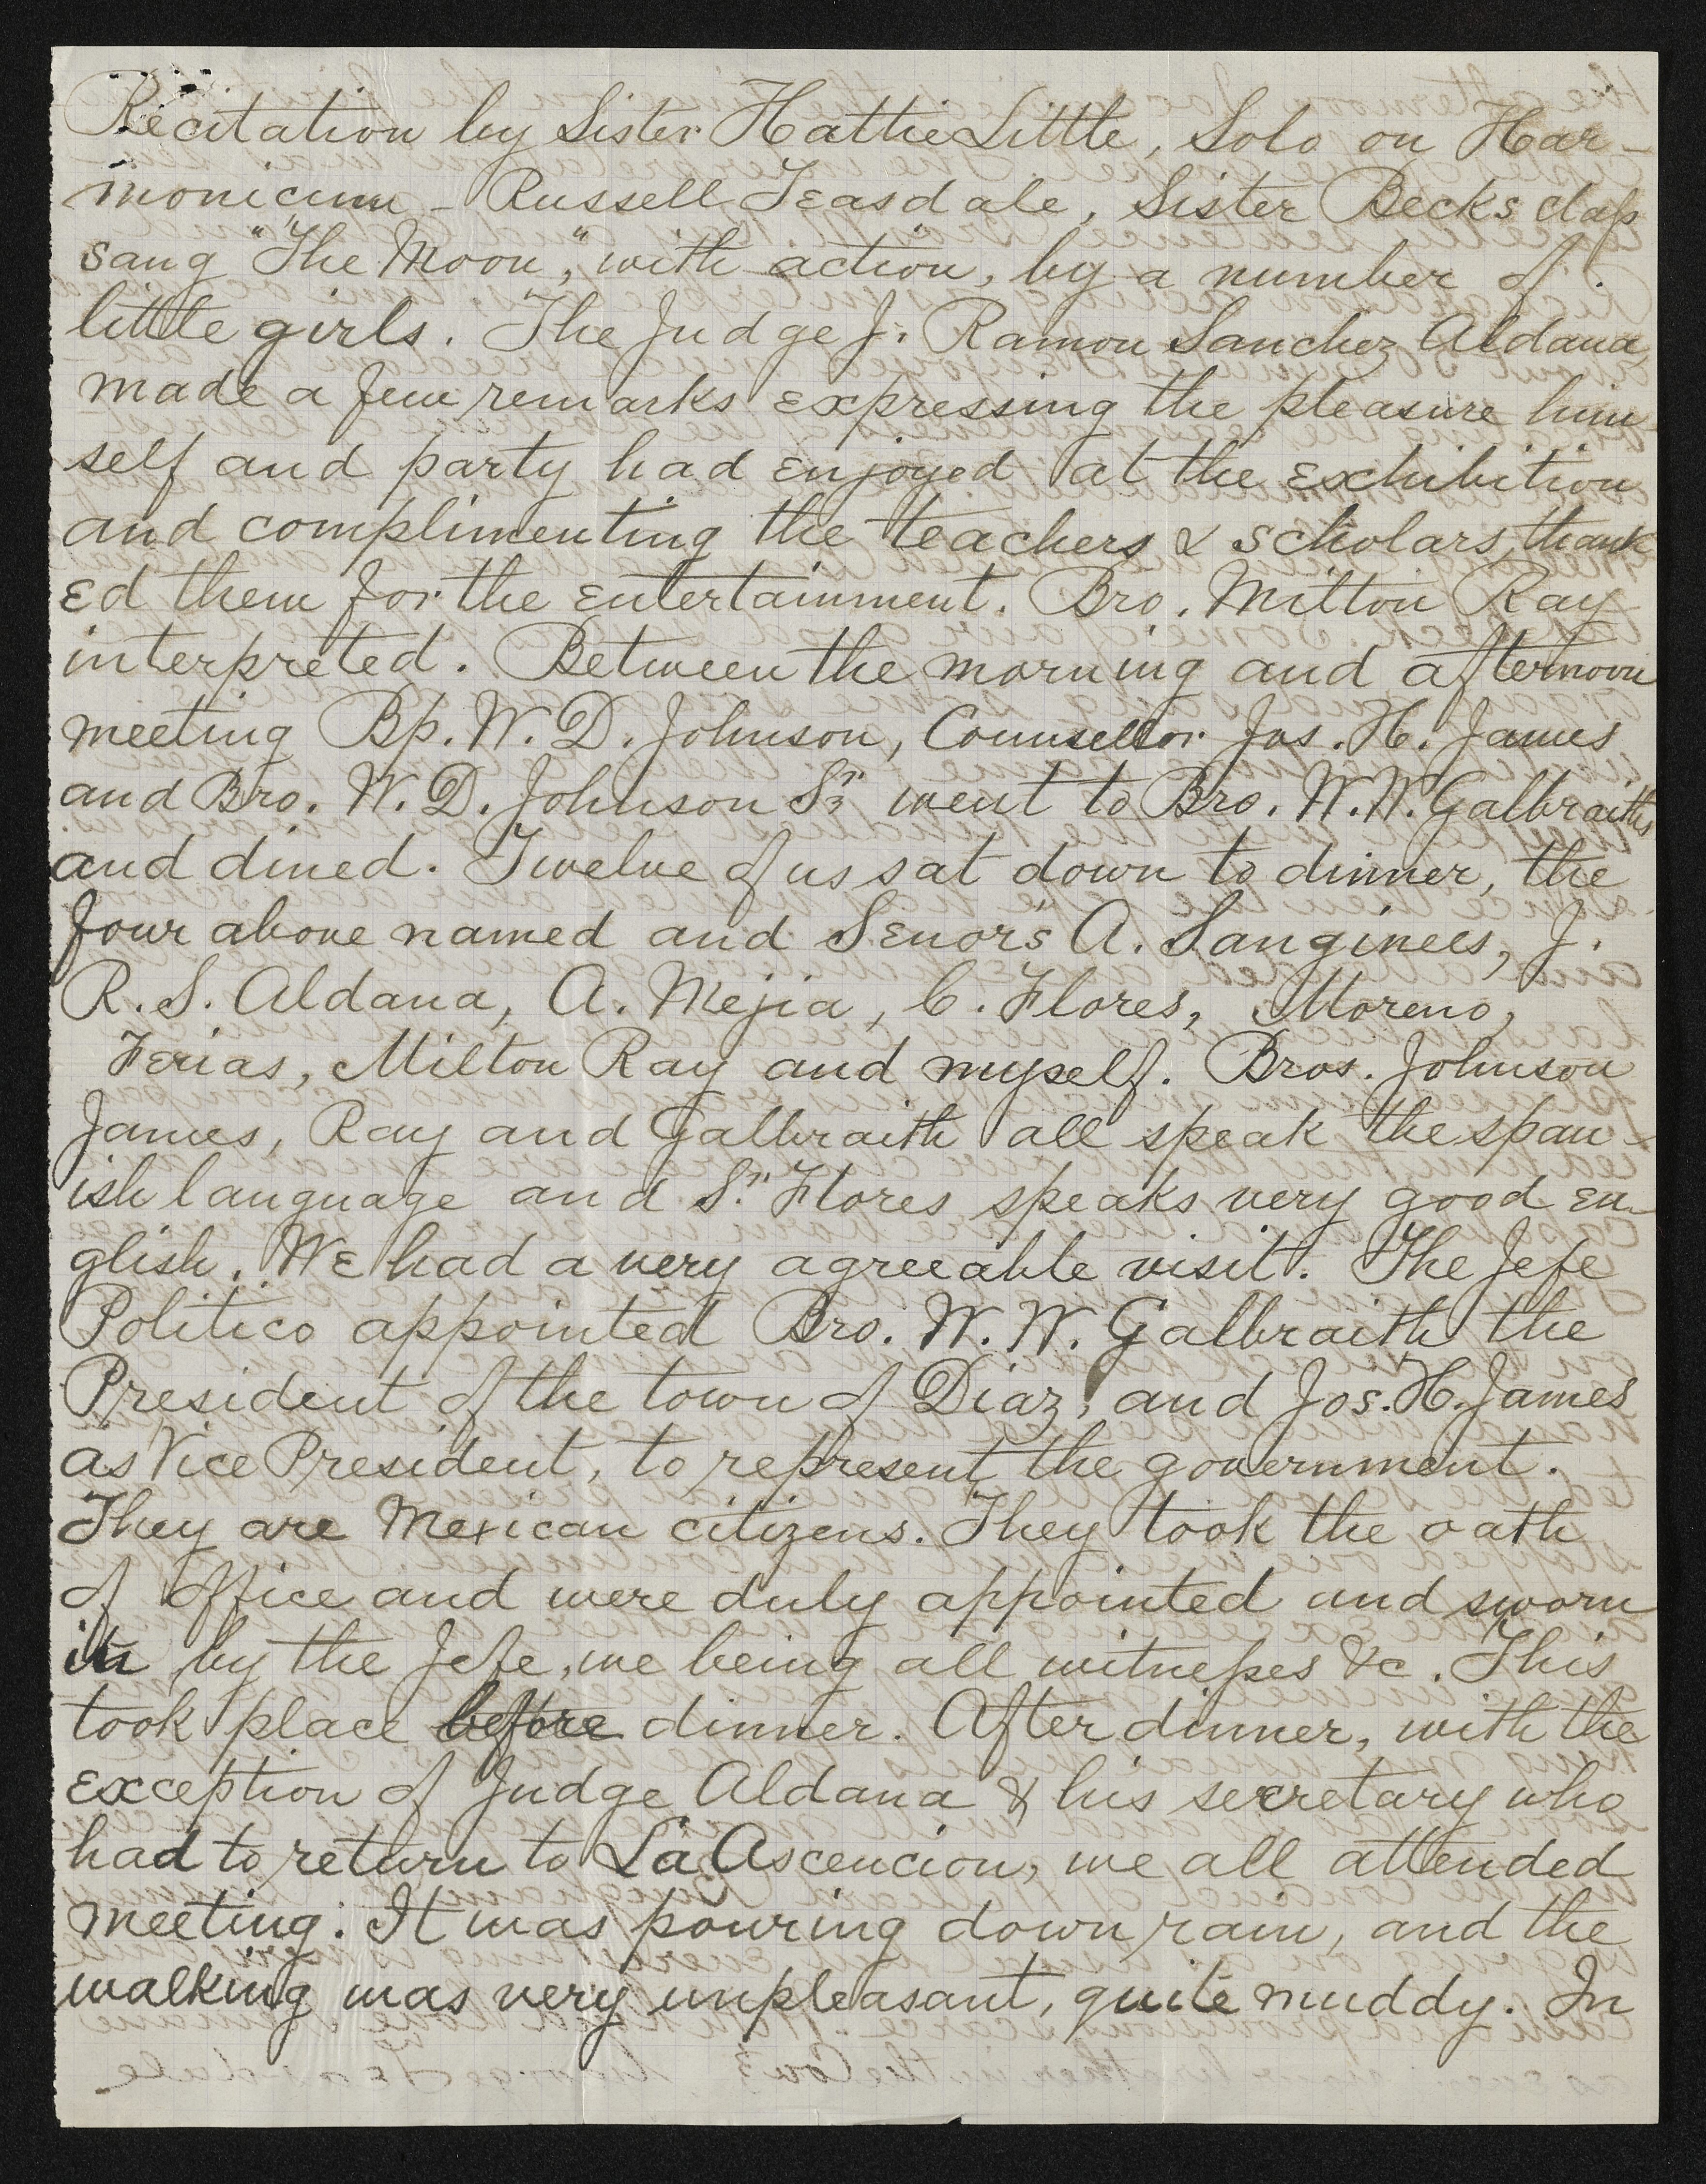 Recitation by Sister Hattie Little, Solo on Har-
monicum - Russell Teasdale, Sister Becks class
sang "The Moon," with action, by a number of
little girls. The Judge J. Ramon Sanchez Aldana,
made a few remarks expressing the pleasure him-
self and party had enjoyed at the exhibition
and complimenting the teachers & scholars, thank
ed them for the entertainment. Bro. Milton Ray
interpreted. Between the morning and afternoon
meeting Bp. W. D. Johnson, Counsellor Jos. H. James
and Bro. W. D. Johnson Sr went to Bro. W. W. Galbraiths
and dined. Twelve of us sat down to dinner, the
four above named and Senors A. Sanginees, J.
R. S. Aldana, A. Mejia, C. Flores, Moreno,
Ferias, Milton Ray and myself. Bros. Johnson
James, Ray and Galbraith all speak the span-
ish language and Sr. Flores speaks very good en-
glish. We had a very agreeable visit. The Jefe
Politico appointed Bro. W. W. Galbraith the
President of the town of Diaz, and Jos. H. James
as Vice President, to represent the government.
They are Mexican citizens. They took the oath
of office and were duly appointed and sworn
in by the Jefe, we being all witnesses &c. This
took place before dinner. After dinner, with the
exception of Judge Aldana & his secretary who
had to return to La Ascencion, we all attended
meeting. It was pouring down rain, and the
walking was very unpleasant, quite muddy. In